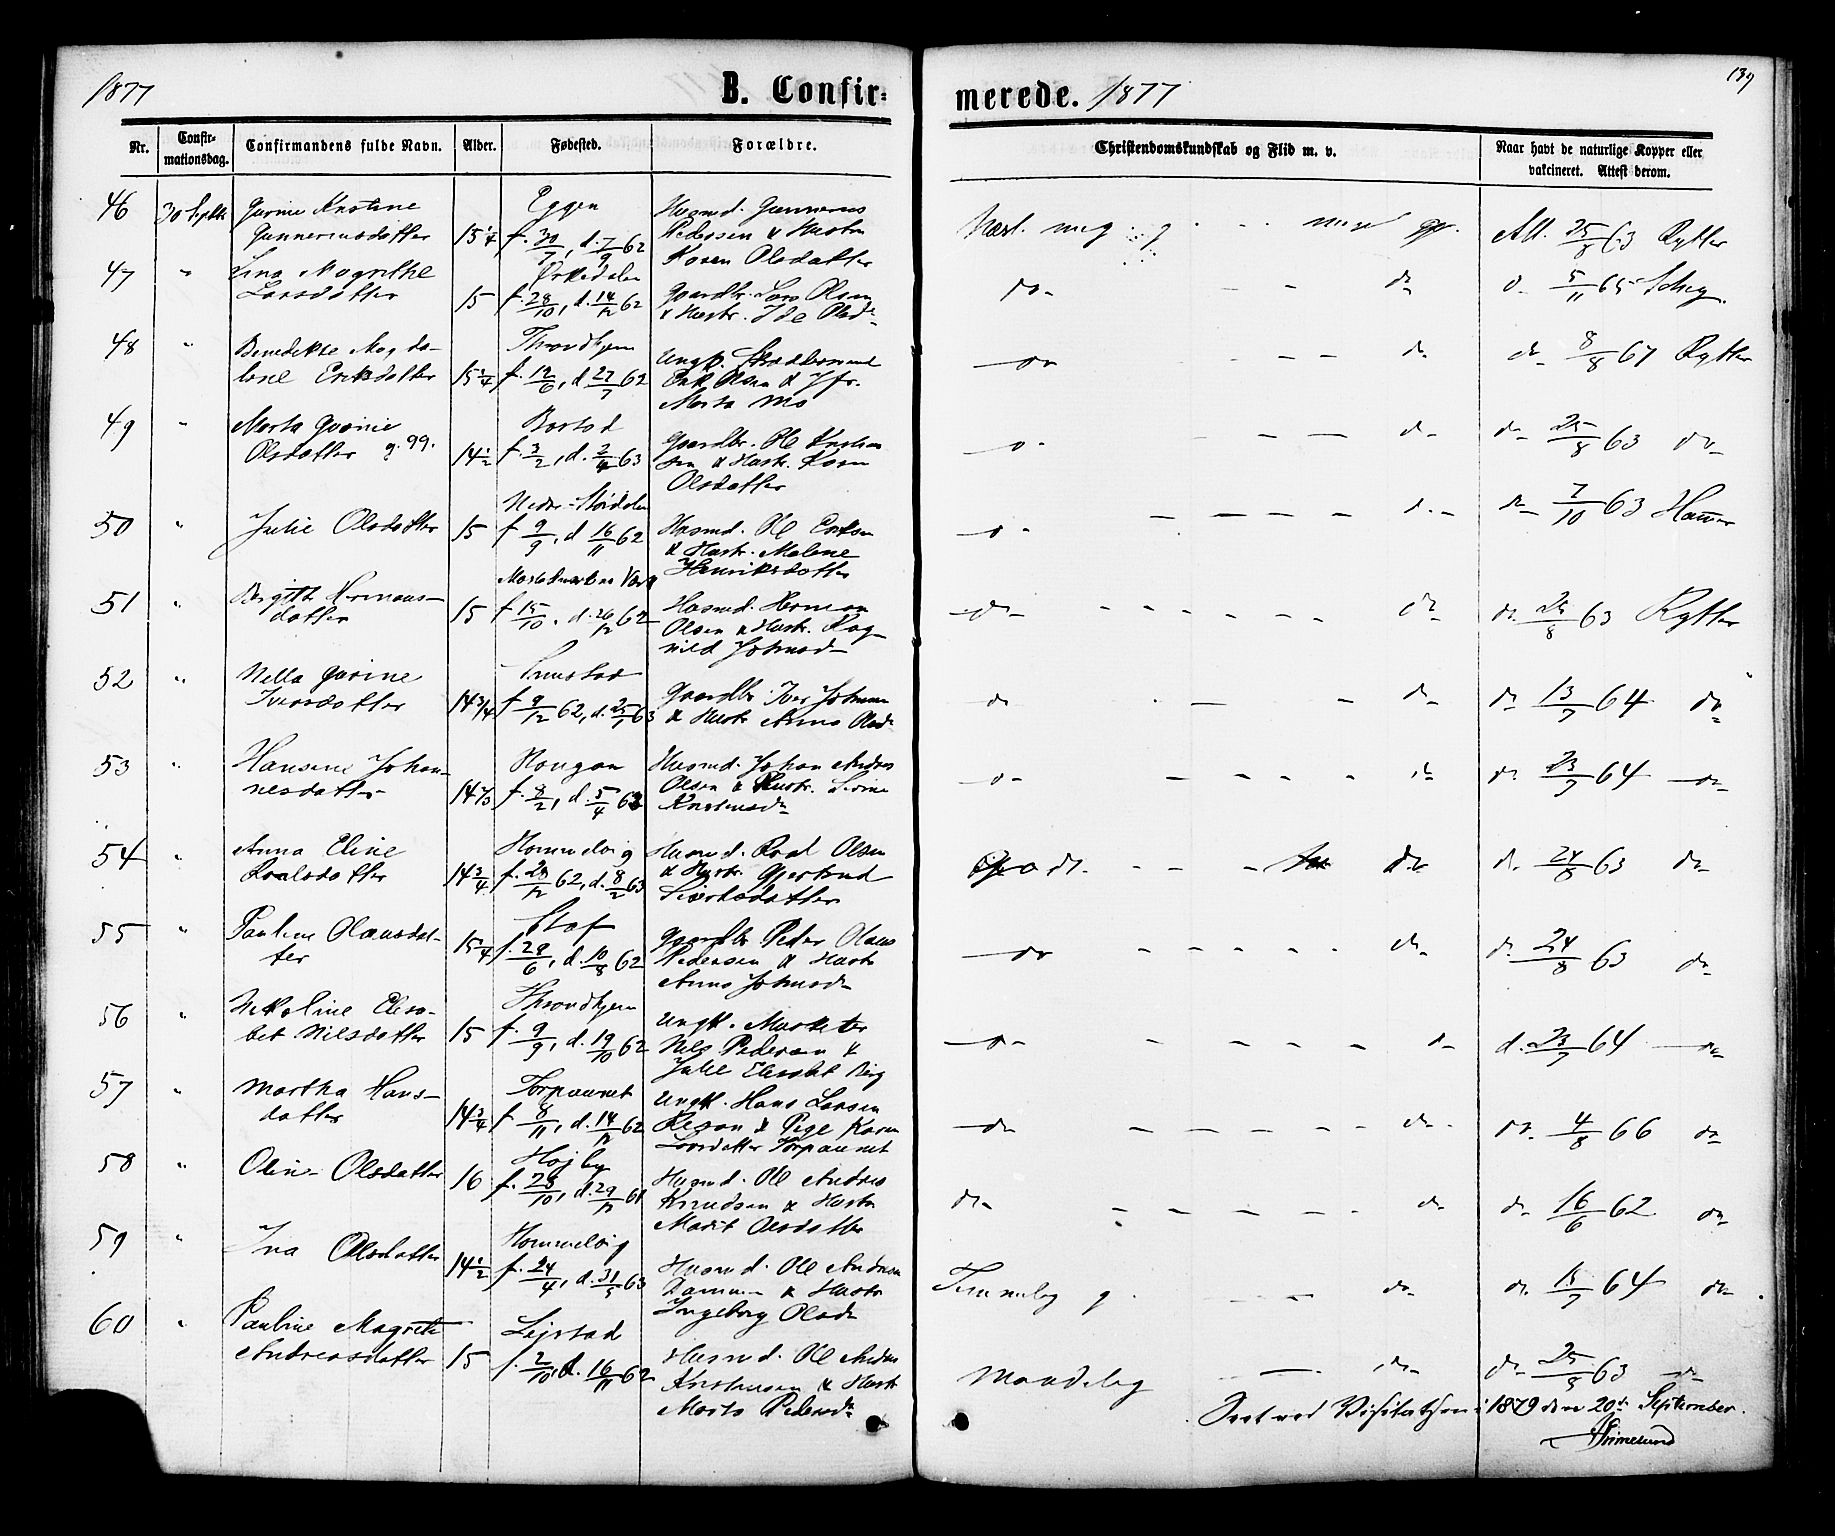 1877
B. Confir-
merede. 1877
139
Nr.
Confir-
mationsdag.
Confirmandens fulde Navn.
Alder.
Fødested.
Forældre.
Christendomskundskab og Flid m. v.
Naar havt de naturlige Kopper eller
vakcineret. Attest derom.
46 30 Septbr Gurine Kristine
Gunneriusdatter
15 1/4
Eggen
f. 30/7, d. 7/9 62
Husmd. Gunnerus
Pedersen & Hustr
Karen Olsdatter
meg. g.
Att. 25/8 63 Rytter
47 " Lina Magrethe
Larsdatter
15
Orkedalen
f. 28/10, d. 14/12 62
Gaardbr. Lars Olsen
& Hustr. Ide Olsd.
do- - - do
d- 5/11 65
48 " Benedikte Magda-
lene Eriksdatter
15 1/4
Throndhjem
f. 12/6, d. 27/7 62
Ungk.
Erik Olsen & Jfr.
Marta Mo
do - - - do
do- 8/8 67 Rytter
49 " Marta Gurine
Olsdatter g. 99.
14 1/2
Borstad
f. 3/2, d. 3/4 63
Gaardbr. Ole Kristian
sen & Hustr. Karen
Olsdatter
do - - - do
do 25/8 63 do
50 " Julie Olsdatter
15
f. 9/9, d. 16/11 62
Husmd. Ole Eriksen
& Hustr. Malene
Henriksdatter
do - - - do
do 7/10 63 Hammer
51 " Birgitte Hermans-
datter
15
f. 15/10, d. 26/12 62
Husmd. Herman
Olsen & Hustr. Rag-
nild Johnsd.
do - - - do
do 25/8 63 Rytter
52 " Nella Gurine
Iversdatter
14 3/4
f. 9/12 62, d. 25/1 63
Gaardbr. Iver Johnsen
& Hustr Anna Olsd.
do - - do
do 13/7 64 do
53 " Hansine Johan-
nesdatter
14 1/2
Haugan
f. 8/2, d. 5/4 63
Husmd. Johan Andreas
Olsen & Hustr.
Kristensd.
do - - - do
do 23/7 64 do
54 " Anna Eline
Roalsdatter
14 3/4
Hommelvig
f. 28/12 62, d. 8/2 63
Husmd. Roal Olsen
& Hustr. Gjertrud
Sivertsdatter
Godt. - - - do
do 24/8 63 do
55 " Pauline Olausdat-
ter
15 1/4
Stav
f. 29/6, d. 10/8 62
Gaardbr. Peder Olaus
Pedersen & Hustr
Anna Johnsd.
do - - - do
do 24/8 63 do
56 " Nikoline Elisa-
bet Nilsdatter
15
Throndhjem
f. 9/9, d. 19/10 62
Ungk. Musketer
Nils Pedersen &
Julie Elisabet Berg
do - - - do
d. 23/7 64 do
57 " Martha Hans-
datter
14 3/4
f. 8/11, d. 14/12 62
Ungk. Hans Larsen
& Pige Karen
Larsdatter
do - - - do
do 4/8 66 do
58 " Oline Olsdatter
16
Højby
f. 28/10, d. 29/12 61
Husmd. Ole Andreas
Knudsen & Hustr
Marit Olsdatter
do - - - do
do 16/6 62 do
59 " Ina Olsdatter
14 1/2
Hommelvig
f. 24/4, d. 31/5 63
Husmd. Ole Andreas
& Hustr
Ingeborg Olsd.
Temmelig g. - - do
do 13/7 64 do
60 " Pauline Magrete
Andreasdatter
15
Leistad
f. 2/10, d. 16/11 62
Husmd. Ole Andreas
Kristensen & Hustr
Marta Pedersd.
Maadelig - do
do 25/8 63 do
Seet ved Visitatsen i 1879 den 20de September.
Grimelund